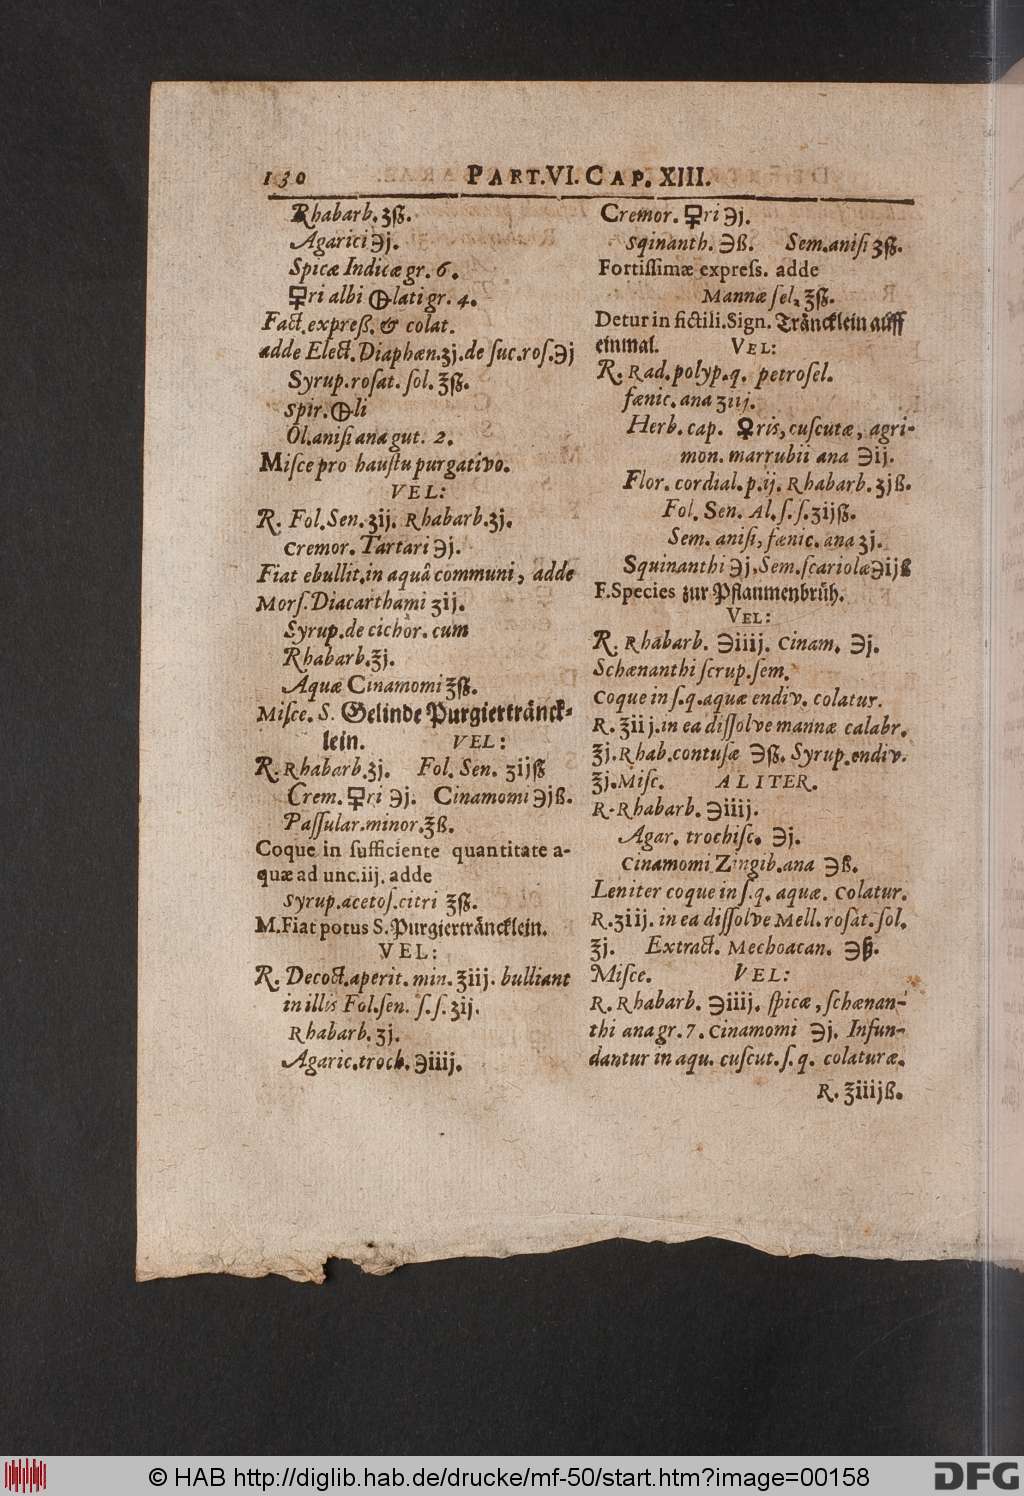 130 PART.VI. CAP. XIII.
Rhabarb. ʒß.
Agarici ℈j.
Spicæ Indicæ gr. 6.
🜿ri albi 🜨lati gr. 4.
Fact. expreß. & colat.
adde Elect. Diaphæn. ʒj. de ſuc. roſ. ℈j
Syrup. roſat. ſol. ℥ß.
Spir. 🜨li
Ol. aniſi ana gut. 2.
Miſce pro hauſtu purgativo.
VEL:
R. Fol. Sen. ʒij. Rhabarb. ʒj.
Cremor. Tartari ℈j.
Fiat ebullit. in aquâ communi, adde
Morſ. Diacarthami ʒij.
Syrup. de cichor. cum
Rhabarb. ℥j.
Aquæ Cinamomi ℥ß.
Miſce. S. Gelinde Purgiertränck-
lein. VEL:
R. Rhabarb. ʒj. Fol. Sen. ʒijß
Crem. 🜿ri ℈j. Cinamomi ℈jß.
Paſſular. minor. ℥ß.
Coque in ſufficiente quantitate a-
quæ ad unc. iij. adde
Syrup. acetoſ. citri ℥ß.
M. Fiat potus S. Purgiertråncklein.
VEL:
R. Decoct. aperit. min. ℥iij. bulliant
in illis Fol. ſen. ſ. ſ. ʒij.
Rhabarb. ʒj.
Agaric. troch. ℈iiij.
Cremor. 🜿ri ℈j.
Sqinanth. ℈ß. Sem. aniſi ʒß.
Fortiſſimæ expreſs. adde
Mannæ ſel. ℥ß.
Detur in fictili. Sign. Tråncklein auff
einmal. VEL:
R. Rad. polyp. q. petroſel.
fœnic. ana ʒiij.
Herb. cap. ♀ris, cuſcutæ, agri-
mon. marrubii ana ℈ij.
Flor. cordial. p. ij. Rhabarb. ʒjß.
Fol. Sen. Al. ſ. ſ. ʒijß.
Sem. aniſi, fœnic. ana ʒj.
Squinanthi ℈j, Sem. ſcariolæ ℈ijß
F. Species zur Pflaumenbrůh.
VEL:
R. Rhabarb. ℈iiij. Cinam. ℈j.
Schœnanthi ſcrup. ſem.
Coque in ſ. q. aquæ endiv. colatur.
R. ℥iij. in ea diſſolve mannæ calabr.
℥j. Rhab. contuſæ ℈ß. Syrup. endiv.
℥j. Miſc. ALITER.
R. Rhabarb. ℈iiij.
Agar. trochiſc. ℈j.
Cinamomi Zingib. ana ℈ß.
Leniter coque in ſ. q. aquæ. Colatur.
R. ℥iij. in ea diſſolve Mell. roſat. ſol.
℥j. Extract. Mechoacan. ℈ß.
Miſce. VEL:
R. Rhabarb. ℈iiij. ſpicæ, ſchœnan-
thi ana gr. 7. Cinamomi ℈j. Infun-
dantur in aqu. cuſcut. ſ. q. colaturæ.
R. ℥iiijß.
© HAB http://diglib.hab.de/drucke/mf-50/start.htm?image=00158
DFG